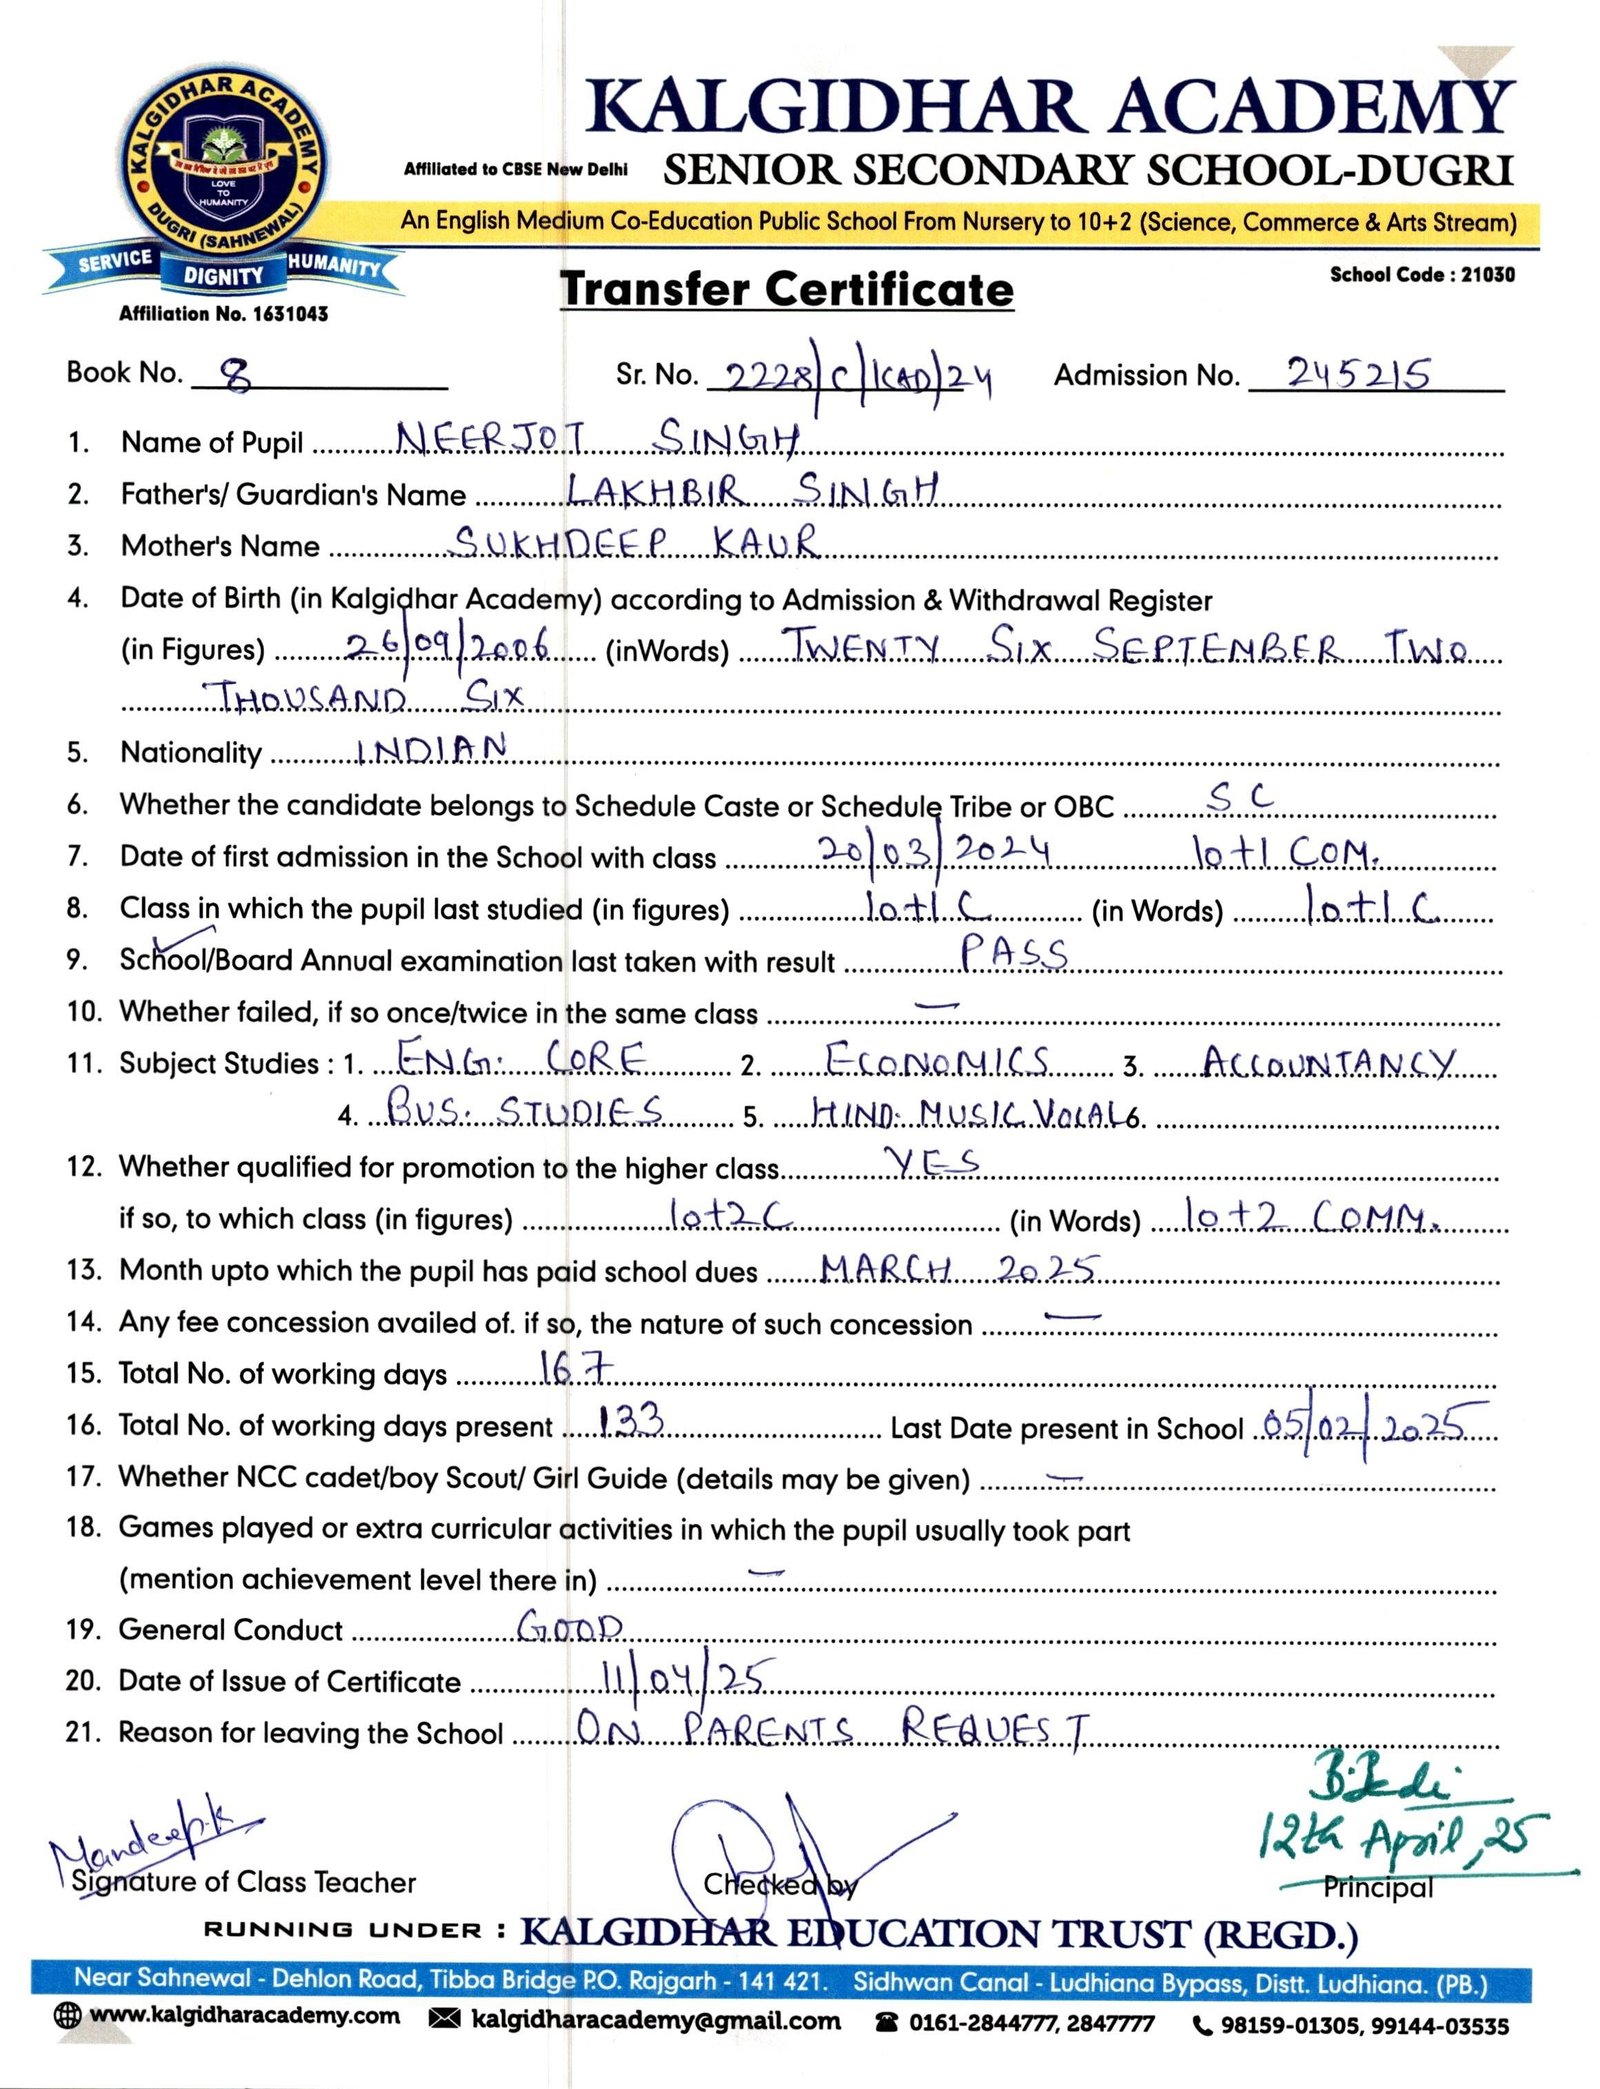 KALGIDHAR ACADEMY
DUGRI (SAHNEWAL)
LOVE
TO
HUMANITY
SERVICE DIGNITY HUMANITY
Affiliation No. 1631043
KALGIDHAR ACADEMY
Affiliated to CBSE New Delhi SENIOR SECONDARY SCHOOL-DUGRI
An English Medium Co-Education Public School From Nursery to 10+2 (Science, Commerce & Arts Stream)
School Code : 21030
Transfer Certificate
Book No. 8 Sr. No. 2228/C/KAD/24 Admission No. 245215
1. Name of Pupil NEERJOT SINGH
2. Father's/ Guardian's Name LAKHBIR SINGH
3. Mother's Name SUKHDEEP KAUR
4. Date of Birth (in Kalgidhar Academy) according to Admission & Withdrawal Register
(in Figures) 26/09/2006 (inWords) TWENTY SIX SEPTEMBER TWO
THOUSAND SIX
5. Nationality INDIAN
6. Whether the candidate belongs to Schedule Caste or Schedule Tribe or OBC SC
7. Date of first admission in the School with class 20/03/2024 10+1 COM.
8. Class in which the pupil last studied (in figures) 10+1 C (in Words) 10+1 C
9. School/Board Annual examination last taken with result PASS
10. Whether failed, if so once/twice in the same class —
11. Subject Studies : 1. ENG. CORE 2. ECONOMICS 3. ACCOUNTANCY
4. BUS. STUDIES 5. HIND. MUSIC VOCAL 6.
12. Whether qualified for promotion to the higher class YES
if so, to which class (in figures) 10+2 C (in Words) 10+2 COMM.
13. Month upto which the pupil has paid school dues MARCH 2025
14. Any fee concession availed of. if so, the nature of such concession —
15. Total No. of working days 167
16. Total No. of working days present 133 Last Date present in School 05/02/2025
17. Whether NCC cadet/boy Scout/ Girl Guide (details may be given) —
18. Games played or extra curricular activities in which the pupil usually took part
(mention achievement level there in) —
19. General Conduct GOOD
20. Date of Issue of Certificate 11/04/25
21. Reason for leaving the School ON PARENTS REQUEST
Mandeep.k B.Bedi
12th April, 25
Signature of Class Teacher Checked by Principal
RUNNING UNDER : KALGIDHAR EDUCATION TRUST (REGD.)
Near Sahnewal - Dehlon Road, Tibba Bridge P.O. Rajgarh - 141 421. Sidhwan Canal - Ludhiana Bypass, Distt. Ludhiana. (PB.)
www.kalgidharacademy.com kalgidharacademy@gmail.com 0161-2844777, 2847777 98159-01305, 99144-03535